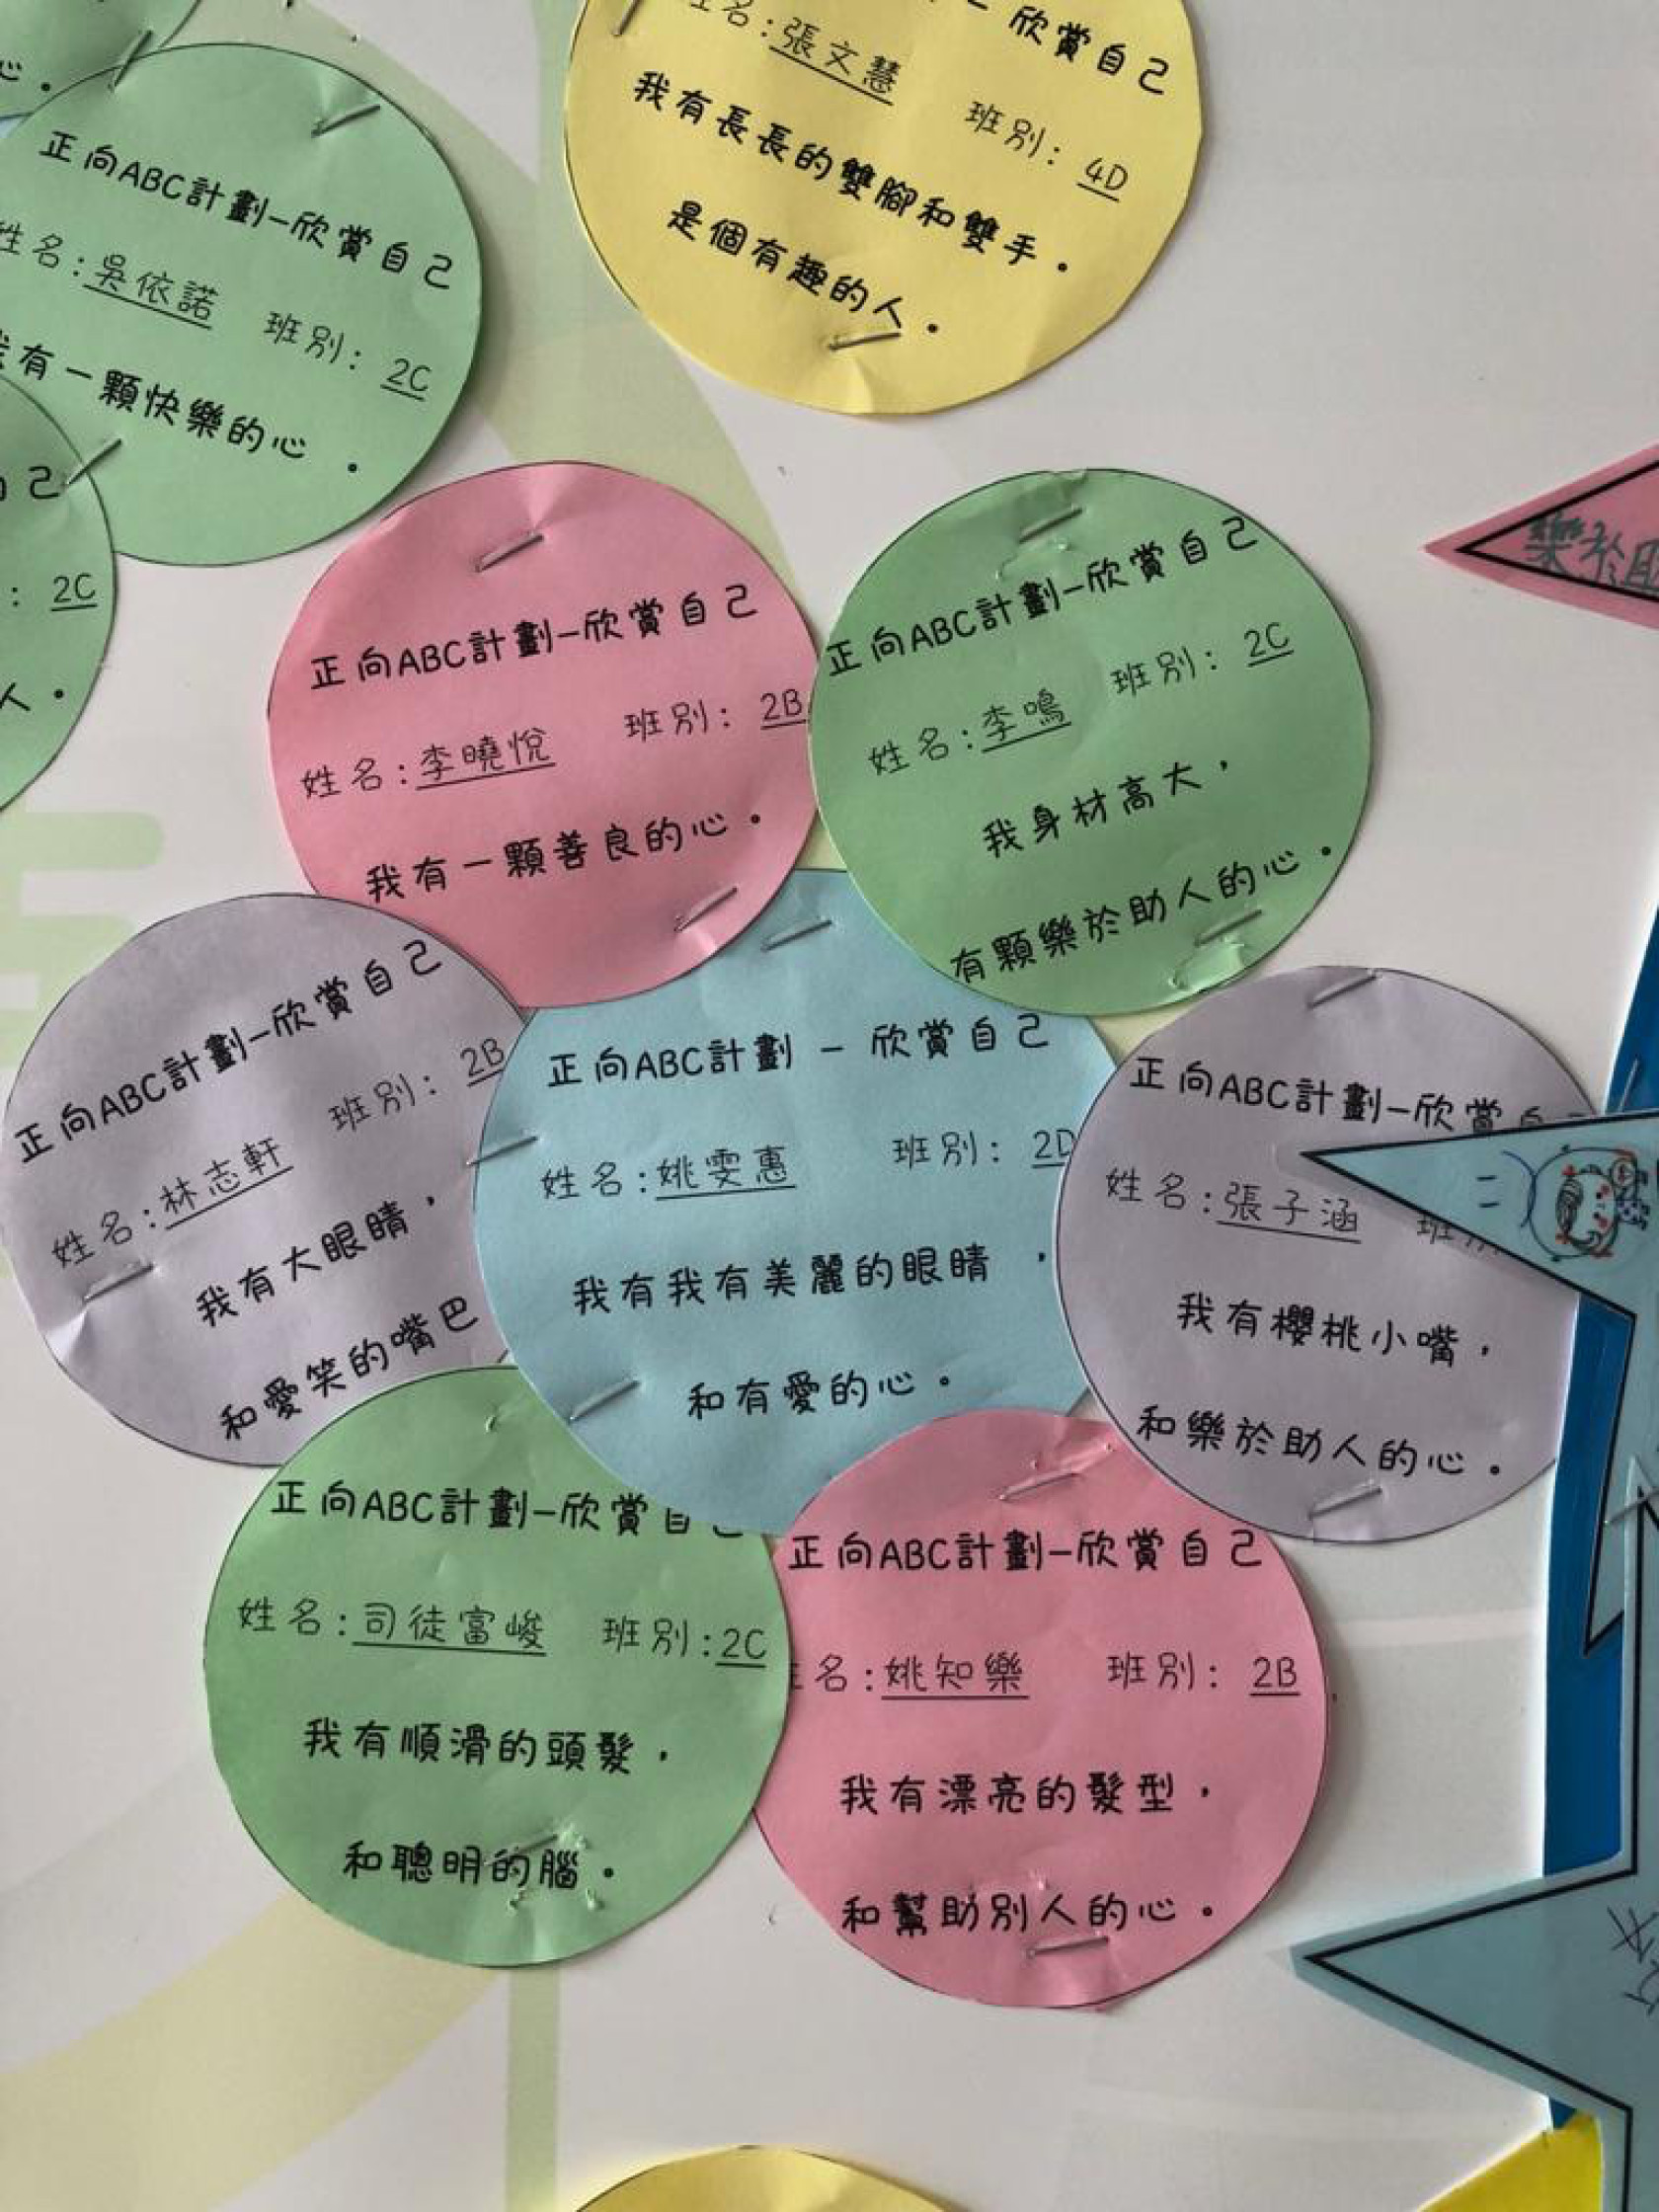 心.
正向ABC計劃-欣賞自己
姓名:吳依諾 班別:2C
有一顆快樂的心.
己
: 2C
人.
名:張文慧
- 欣賞自己
班別:4D
我有長長的雙腳和雙手.
是個有趣的人.
正向ABC計劃-欣賞自己
姓名:李曉悅 班別:2B
我有一顆善良的心.
正向ABC計劃-欣賞自己
姓名:李鳴 班別:2C
我身材高大,
有顆樂於助人的心.
樂於助
正向ABC計劃-欣賞自己
姓名:林志軒 班別:2B
我有大眼睛,
和愛笑的嘴巴
正向ABC計劃 - 欣賞自己
姓名:姚雯惠 班別:2D
我有我有美麗的眼睛 ,
和有愛的心.
正向ABC計劃-欣賞自
姓名:張子涵 班
我有櫻桃小嘴,
和樂於助人的心.
正向ABC計劃-欣賞自己
姓名:司徒富峻 班別:2C
我有順滑的頭髮,
和聰明的腦.
正向ABC計劃-欣賞自己
名:姚知樂 班別:2B
我有漂亮的髮型,
和幫助別人的心.